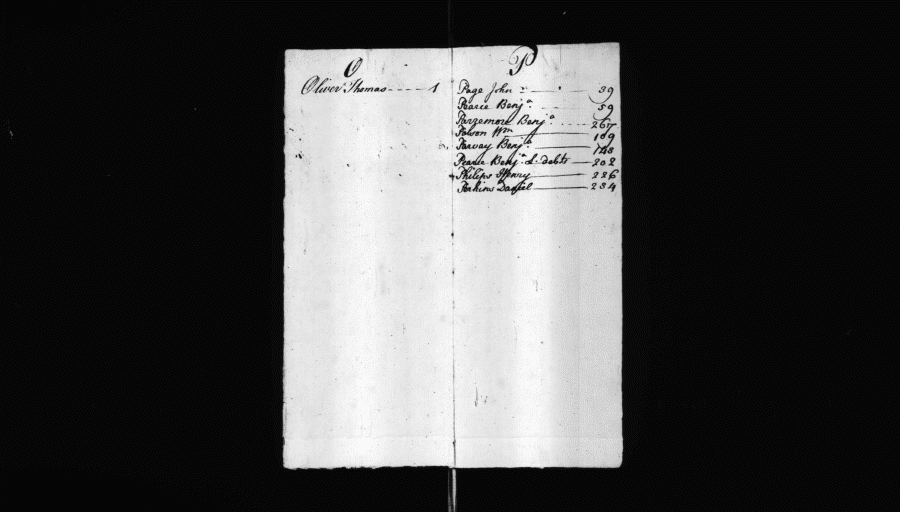 O
Oliver Thomas - - - - - 1
P
Page John - - 39
Pearce Benj.a - - 59
Parzemore Benj.a - - - - 267
Pawon Wm 109
Parvay Benj.a 148
Pearce Benj.a L. debts 202
Philips Henry 226
Perkins Daniel 234